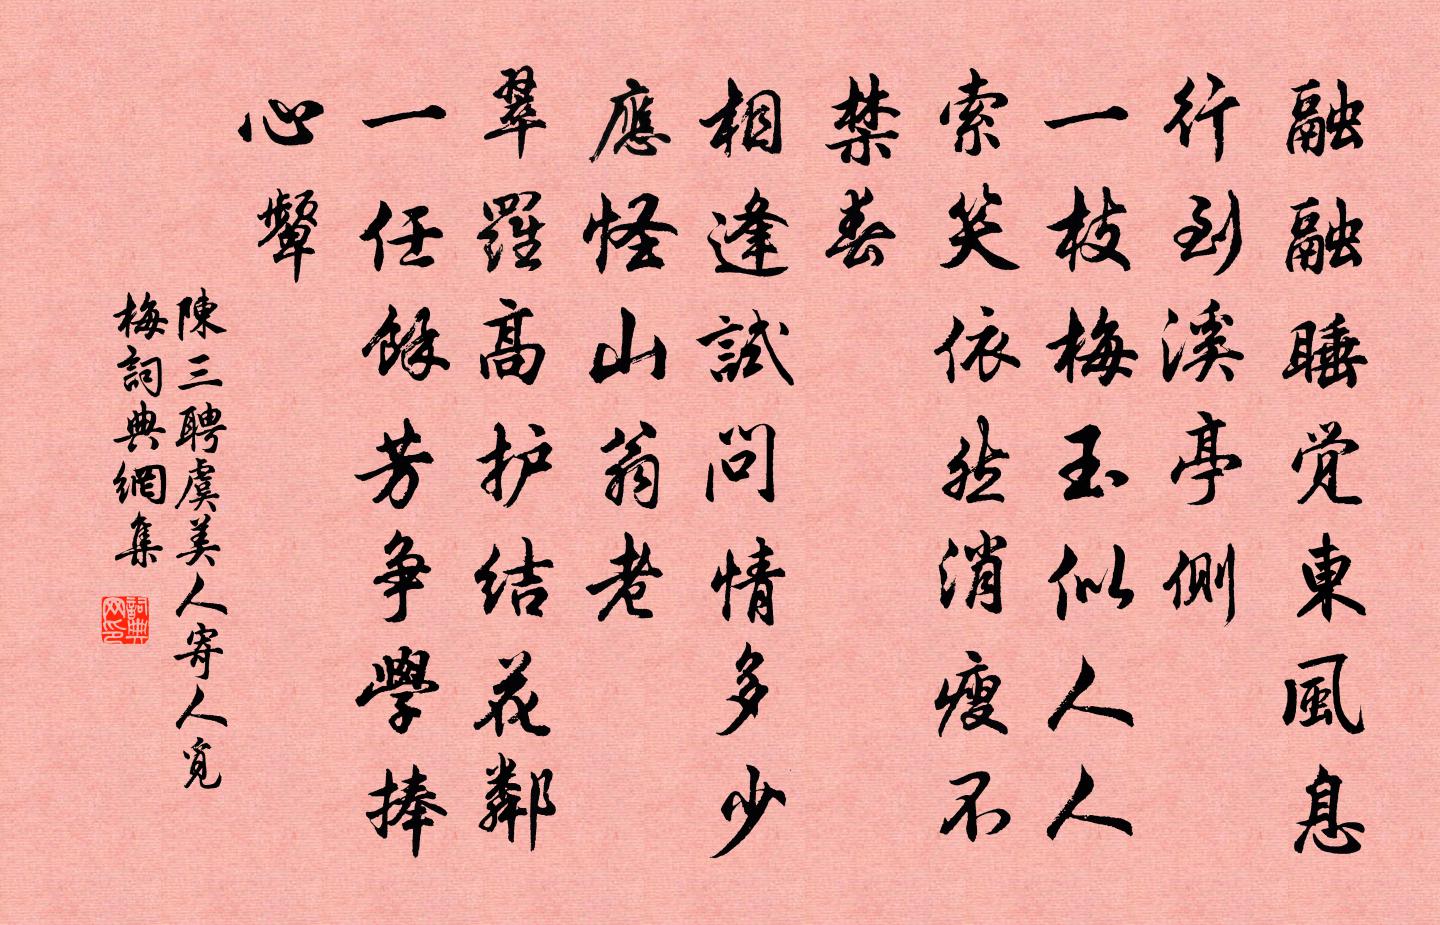 融融睡觉東風息
行到溪亭側
一枝梅玉似人人
索笑依然消瘦不
禁春
相逢試問情多少
應怪山翁老
翠羅高护结花鄰
一任餘芳争學捧
心顰
陳三聘虞美人寄人覓
梅詞典網集
詞典
网印